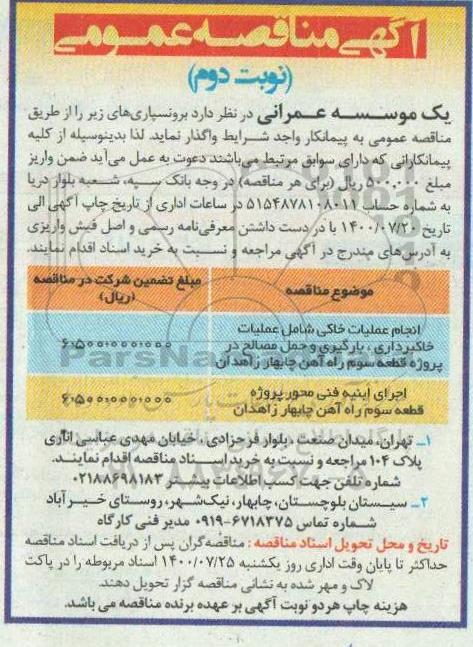 آگهی مناقصه عمومی
(نوبت دوم)
یک موسسه عمرانی در نظر دارد برونسپاری‌های زیر را از طریق
مناقصه عمومی به پیمانکار واجد شرایط واگذار نماید. لذا بدینوسیله از کلیه
پیمانکارانی که دارای سوابق مرتبط می‌باشند دعوت به عمل می‌آید ضمن واریز
مبلغ ۵۰۰,۰۰۰ ریال (برای هر مناقصه) در وجه بانک سپه، شعبه بلوار دریا
به شماره حساب ۵۱۵۴۸۷۸۱۰۸۰۱۱ در ساعات اداری از تاریخ چاپ آگهی الی
تاریخ ۱۴۰۰/۰۷/۲۰ با در دست داشتن معرفی‌نامه رسمی و اصل فیش واریزی
به آدرس‌های مندرج در آگهی مراجعه و نسبت به خرید اسناد اقدام نمایند.
موضوع مناقصه
مبلغ تضمین شرکت در مناقصه
(ریال)
انجام عملیات خاکی شامل عملیات
خاکبرداری ، بارگیری و حمل مصالح در
پروژه قطعه سوم راه آهن چابهار زاهدان
۶،۵۰۰،۰۰۰،۰۰۰
اجرای ابنیه فنی محور پروژه
قطعه سوم راه آهن چابهار زاهدان
۶،۵۰۰،۰۰۰،۰۰۰
۱_ تهران، میدان صنعت ، بلوار فرحزادی ، خیابان مهدی عباسی اناری
پلاک ۱۰۴ مراجعه و نسبت به خرید اسناد مناقصه اقدام نمایند.
شماره تلفن جهت کسب اطلاعات بیشتر ۰۲۱۸۸۶۹۸۱۸۳
۲_ سیستان بلوچستان، چابهار، نیک‌شهر، روستای خیر آباد
شماره تماس ۶۷۱۸۳۷۵-۰۹۱۹ مدیر فنی کارگاه
تاریخ و محل تحویل اسناد مناقصه : مناقصه‌گران پس از دریافت اسناد مناقصه
حداکثر تا پایان وقت اداری روز یکشنبه ۱۴۰۰/۰۷/۲۵ اسناد مربوطه را در پاکت
لاک و مهر شده به نشانی مناقصه گزار تحویل دهند.
هزینه چاپ هر دو نوبت آگهی بر عهده برنده مناقصه می باشد.